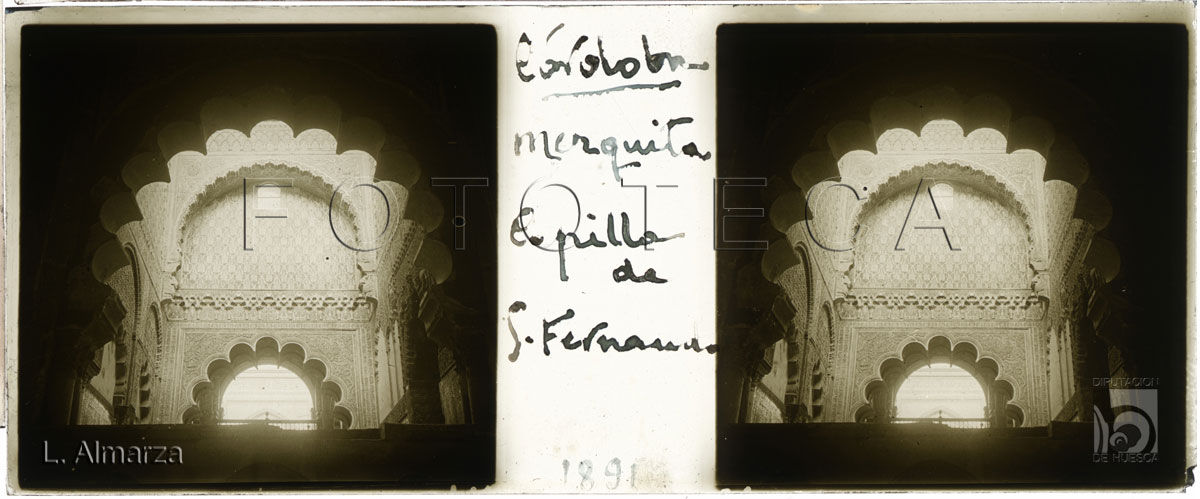 Córdoba
mezquita
Capilla
de
S. Fernando
1891
FOTOTECA
L. Almarza
DIPUTACION
DE HUESCA